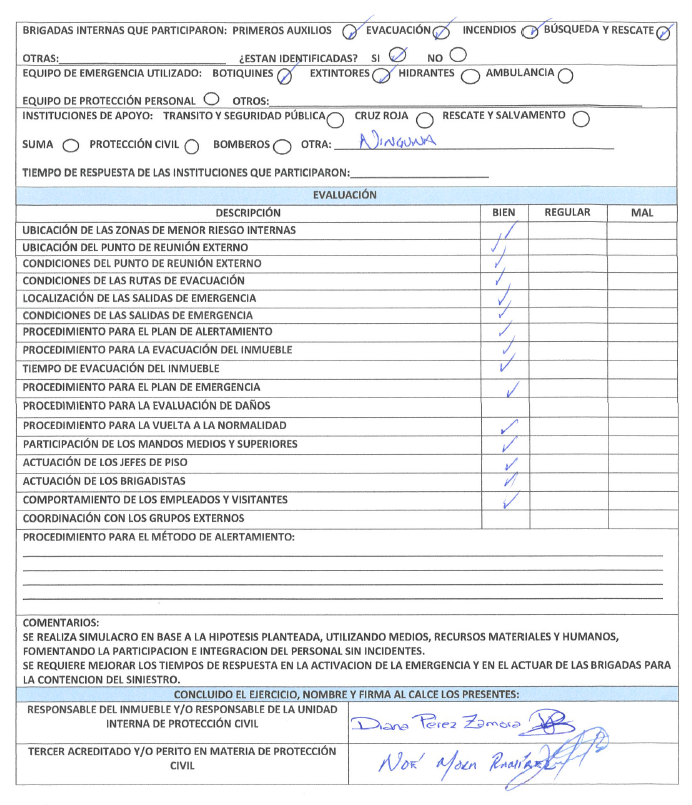 BRIGADAS INTERNAS QUE PARTICIPARON: PRIMEROS AUXILIOS EVACUACIÓN INCENDIOS BÚSQUEDA Y RESCATE
OTRAS: ¿ESTAN IDENTIFICADAS? SI NO
EQUIPO DE EMERGENCIA UTILIZADO: BOTIQUINES EXTINTORES HIDRANTES AMBULANCIA
EQUIPO DE PROTECCIÓN PERSONAL OTROS:
INSTITUCIONES DE APOYO: TRANSITO Y SEGURIDAD PÚBLICA CRUZ ROJA RESCATE Y SALVAMENTO
SUMA PROTECCIÓN CIVIL BOMBEROS OTRA: NINGUNA
TIEMPO DE RESPUESTA DE LAS INSTITUCIONES QUE PARTICIPARON:
EVALUACIÓN
DESCRIPCIÓN BIEN REGULAR MAL
UBICACIÓN DE LAS ZONAS DE MENOR RIESGO INTERNAS ✓
UBICACIÓN DEL PUNTO DE REUNIÓN EXTERNO ✓
CONDICIONES DEL PUNTO DE REUNIÓN EXTERNO ✓
CONDICIONES DE LAS RUTAS DE EVACUACIÓN ✓
LOCALIZACIÓN DE LAS SALIDAS DE EMERGENCIA ✓
CONDICIONES DE LAS SALIDAS DE EMERGENCIA ✓
PROCEDIMIENTO PARA EL PLAN DE ALERTAMIENTO ✓
PROCEDIMIENTO PARA LA EVACUACIÓN DEL INMUEBLE ✓
TIEMPO DE EVACUACIÓN DEL INMUEBLE ✓
PROCEDIMIENTO PARA EL PLAN DE EMERGENCIA ✓
PROCEDIMIENTO PARA LA EVALUACIÓN DE DAÑOS
PROCEDIMIENTO PARA LA VUELTA A LA NORMALIDAD ✓
PARTICIPACIÓN DE LOS MANDOS MEDIOS Y SUPERIORES ✓
ACTUACIÓN DE LOS JEFES DE PISO ✓
ACTUACIÓN DE LOS BRIGADISTAS ✓
COMPORTAMIENTO DE LOS EMPLEADOS Y VISITANTES ✓
COORDINACIÓN CON LOS GRUPOS EXTERNOS
PROCEDIMIENTO PARA EL MÉTODO DE ALERTAMIENTO:
COMENTARIOS:
SE REALIZA SIMULACRO EN BASE A LA HIPOTESIS PLANTEADA, UTILIZANDO MEDIOS, RECURSOS MATERIALES Y HUMANOS,
FOMENTANDO LA PARTICIPACION E INTEGRACION DEL PERSONAL SIN INCIDENTES.
SE REQUIERE MEJORAR LOS TIEMPOS DE RESPUESTA EN LA ACTIVACION DE LA EMERGENCIA Y EN EL ACTUAR DE LAS BRIGADAS PARA
LA CONTENCION DEL SINIESTRO.
CONCLUIDO EL EJERCICIO, NOMBRE Y FIRMA AL CALCE LOS PRESENTES:
RESPONSABLE DEL INMUEBLE Y/O RESPONSABLE DE LA UNIDAD
INTERNA DE PROTECCIÓN CIVIL
Diana Perez Zamora
TERCER ACREDITADO Y/O PERITO EN MATERIA DE PROTECCIÓN
CIVIL
NOÉ MORA RAMÍREZ